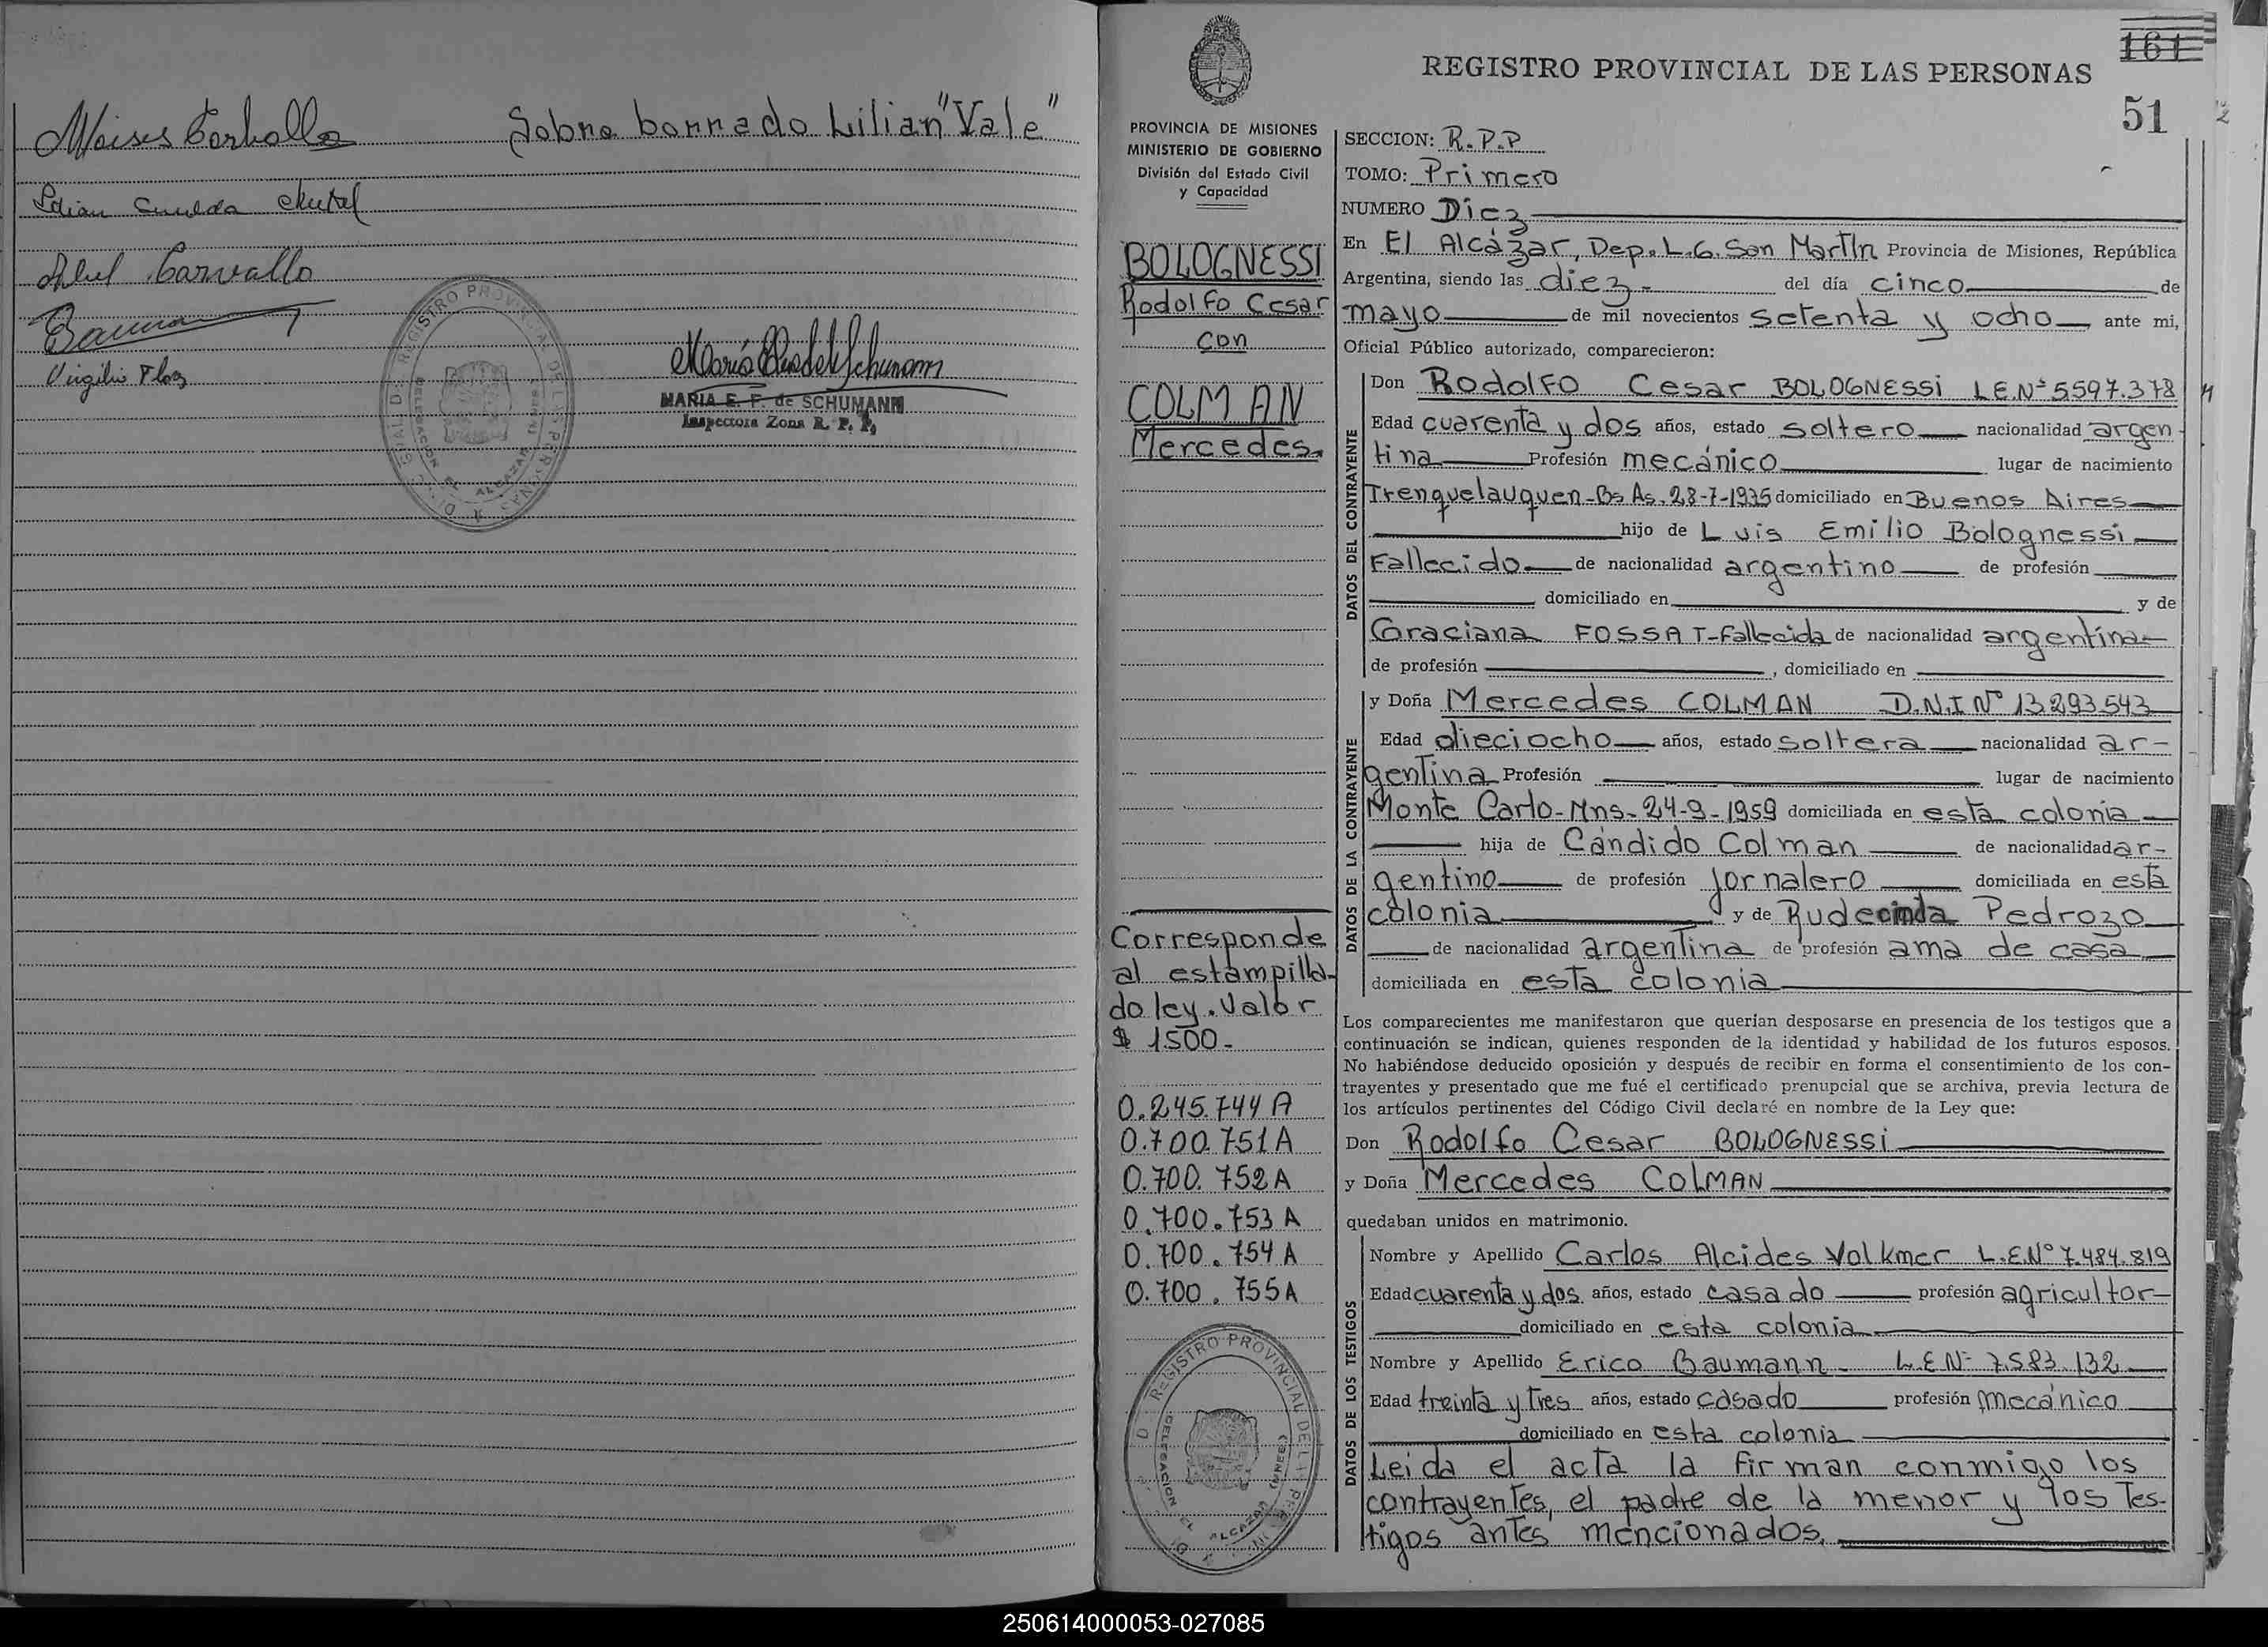 Moises Carballo Sobre borrado Lilian "Vale"
Abel Carvallo
Virgilio
MARIA E. F. de SCHUMANN
Inspectora Zona R. P. P.
REGISTRO PROVINCIAL DE LAS PERSONAS
DELEGACION EL ALCAZAR
161
REGISTRO PROVINCIAL DE LAS PERSONAS
51
PROVINCIA DE MISIONES
MINISTERIO DE GOBIERNO
División del Estado Civil
y Capacidad
BOLOGNESSI
Rodolfo Cesar
con
COLMAN
Mercedes.
Corresponde
al estampilla-
do ley. Valor
$ 1500.-
0.245.744 A
0.700.751 A
0.700.752 A
0.700.753 A
0.700.754 A
0.700.755 A
REGISTRO PROVINCIAL DE LAS PERSONAS
DELEGACION EL ALCAZAR (MNES.)
SECCION: R.P.P
TOMO: Primero
NUMERO Diez
En El Alcázar, Dep. L.G. San Martín Provincia de Misiones, República
Argentina, siendo las diez del día cinco de
mayo de mil novecientos setenta y ocho ante mi,
Oficial Público autorizado, comparecieron:
DATOS DEL CONTRAYENTE
Don Rodolfo Cesar BOLOGNESSI L.E.Nº 5597.378
Edad cuarenta y dos años, estado soltero nacionalidad argen
tina Profesión mecánico lugar de nacimiento
Trenquelauquen-Bs As. 28-7-1935 domiciliado en Buenos Aires
hijo de Luis Emilio Bolognessi
Fallecido de nacionalidad argentino de profesión
domiciliado en y de
Graciana FOSSAT-Fallecida de nacionalidad argentina
de profesión , domiciliado en
DATOS DE LA CONTRAYENTE
y Doña Mercedes COLMAN D.N.I Nº 13293543
Edad dieciocho años, estado soltera nacionalidad ar-
gentina Profesión lugar de nacimiento
Monte Carlo-Mns-24-9-1959 domiciliada en esta colonia
hija de Cándido Colman de nacionalidad ar-
gentino de profesión jornalero domiciliada en esta
colonia y de Rudecinda Pedrozo
de nacionalidad argentina de profesión ama de casa
domiciliada en esta colonia
Los comparecientes me manifestaron que querían desposarse en presencia de los testigos que a
continuación se indican, quienes responden de la identidad y habilidad de los futuros esposos.
No habiéndose deducido oposición y después de recibir en forma el consentimiento de los con-
trayentes y presentado que me fué el certificado prenupcial que se archiva, previa lectura de
los artículos pertinentes del Código Civil declaré en nombre de la Ley que:
Don Rodolfo Cesar BOLOGNESSI
y Doña Mercedes COLMAN
quedaban unidos en matrimonio.
DATOS DE LOS TESTIGOS
Nombre y Apellido Carlos Alcides Volkmer L.E.Nº 7.484.819
Edad cuarenta y dos años, estado casado profesión agricultor
domiciliado en esta colonia
Nombre y Apellido Erico Baumann L.E Nº 7583.132
Edad treinta y tres años, estado casado profesión mecánico
domiciliado en esta colonia
Leida el acta la firman conmigo los
contrayentes, el padre de la menor y los tes-
tigos antes mencionados.
250614000053-027085